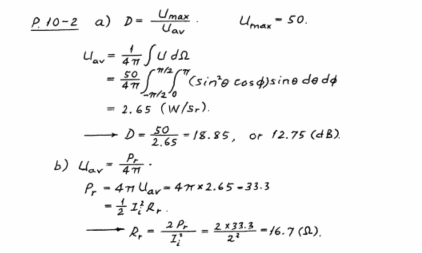 P. 10-2 a) D = U_max / U_av . U_max = 50.
U_av = 1/4π ∫ U dΩ
= 50/4π ∫_{-π/2}^{π/2} ∫_0^π (sin²θ cosφ) sinθ dθ dφ
= 2.65 (W/sr).
→ D = 50/2.65 = 18.85, or 12.75 (dB).
b) U_av = P_r / 4π .
P_r = 4π U_av = 4π × 2.65 = 33.3
= 1/2 I_i² R_r .
→ R_r = 2 P_r / I_i² = 2 × 33.3 / 2² = 16.7 (Ω).